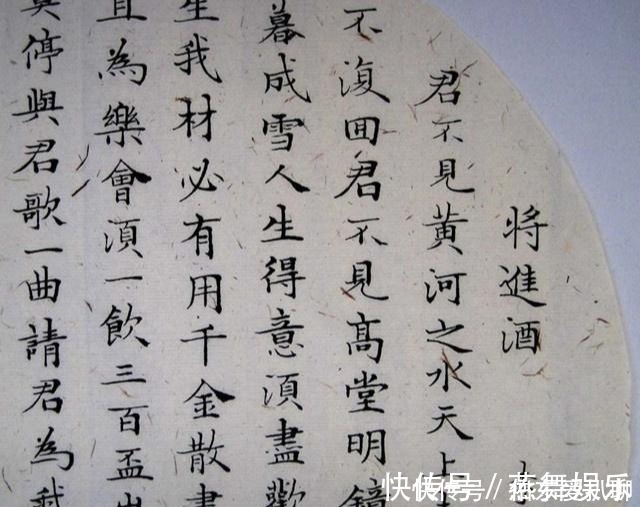 將進酒
君不見黄河之水天上
不復囬君不見髙堂明鏡
暮成雪人生得意湏盡歡
生我材必有用千金散盡
且為樂會湏一飲三百盃
莫停與君歌一曲請君為我
快传号//燕舞娱乐
快传号/